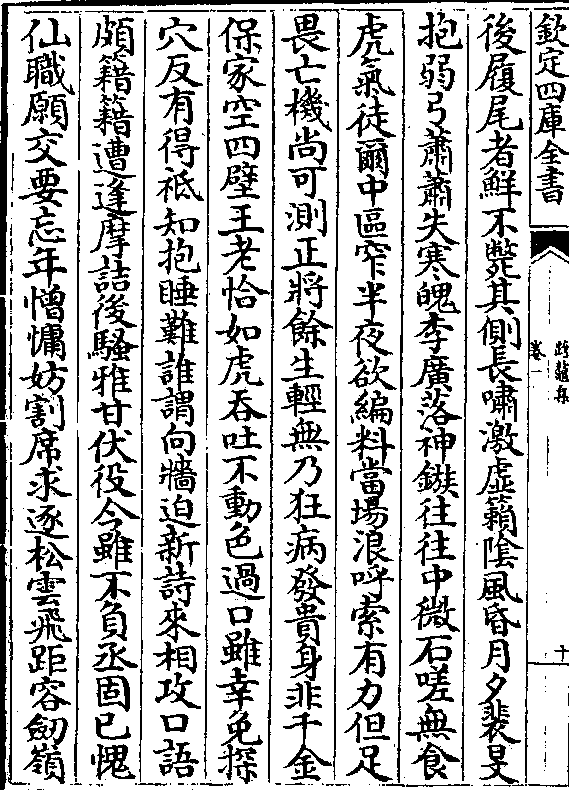 欽定四庫全書
卷一
十
後履尾者鮮不斃其側長嘯激虛籟陰風昏月夕裴旻
抱弱弓蕭蕭失寒魄李廣落神鏃往往中微石嗟無食
虎氣徒爾中區窄半夜欲編料當場浪呼索有力但足
畏亡機尚可測正將餘生輕無乃狂病發貴身非千金
保家空四壁王老恰如虎吞吐不動色過口雖幸免探
穴反有得祗知抱睡難誰謂向牆迫新詩來相攻口語
頗籍籍遭逢摩詰後騷雅甘伏役今雖不負丞固已愧
仙職願交要忘年憎慵妨割席求逐松雲飛距容劒嶺